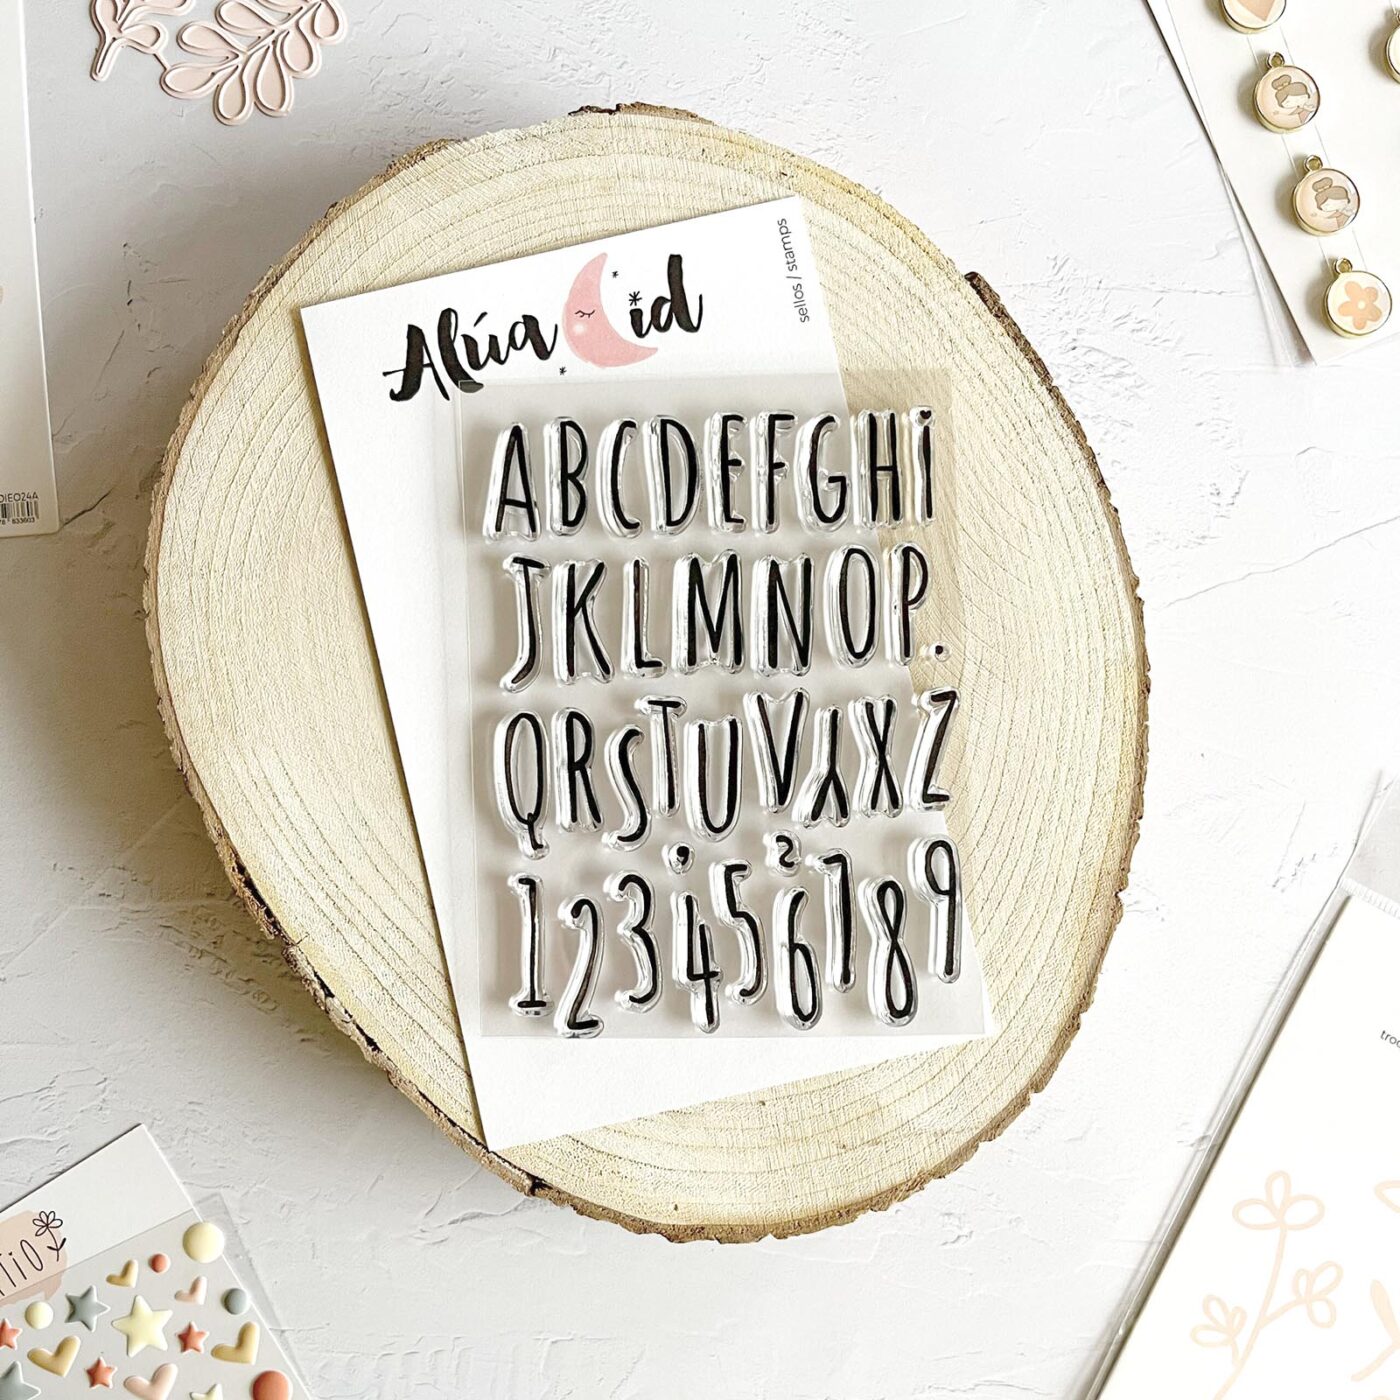 Alúa Cid
sellos / stamps
ABCDEFGHi
JKLMNOP.
QRSTUVYXZ
123,456789
DIE024A